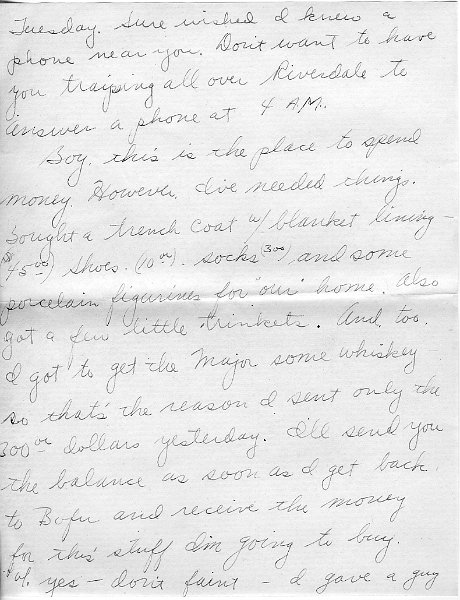 Tuesday. Sure wished I knew a
phone near you. Don't want to have
you traipsing all over Riverdale to
answer a phone at 4 AM.
Boy, this is the place to spend
money. However, I've needed things.
Bought a trench coat w/ blanket lining -
$45.00) Shoes. (10.00). socks (3.00), and some
porcelain figurines for "our" home. Also
got a few little trinkets. And, too,
I got to get the Major some whiskey -
so that's the reason I sent only the
300.00 dollars yesterday. I'll send you
the balance as soon as I get back
to Bofu and receive the money
for this stuff I'm going to buy.
yes - don't faint - I gave a guy